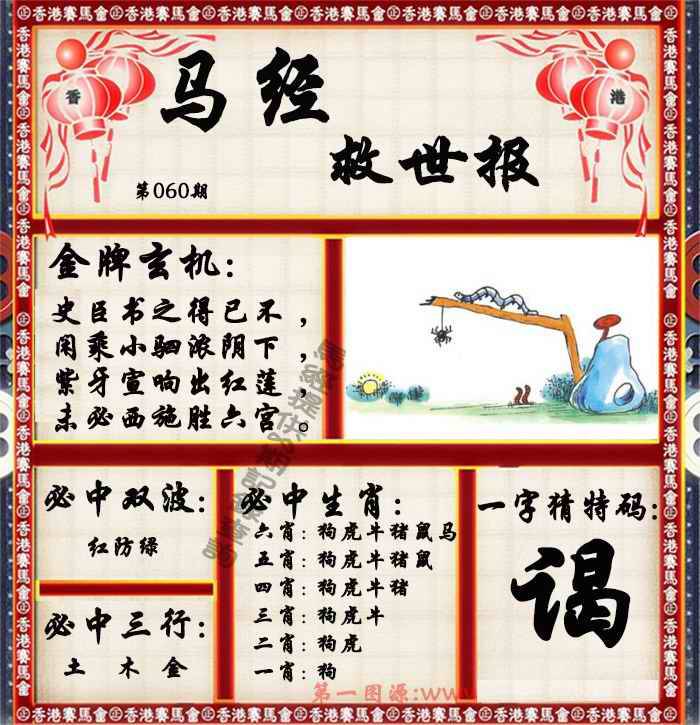 香港賽馬會
香
港
马经
救世报
第060期
金牌玄机：
史臣书之得已不，
闲乘小驷浓阴下，
紫牙宣响出红莲，
未必西施胜六宫。
必中双波：
红防绿
必中三行：
土 木 金
必中生肖：
六肖：狗虎牛猪鼠马
五肖：狗虎牛猪鼠
四肖：狗虎牛猪
三肖：狗虎牛
二肖：狗虎
一肖：狗
一字猜特码：
谒
第一图源:www